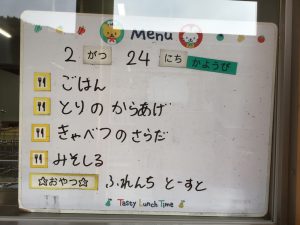 Menu
2 がつ 24 にち かようび
ごはん
とりの からあげ
きゃべつのさらだ
みそしる
☆おやつ☆ ふれんち とーすと
Tasty Lunch Time